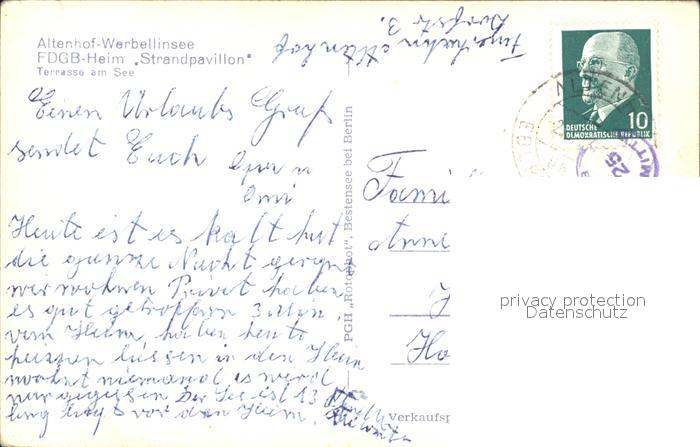 Altenhof-Werbellinsee
FDGB-Heim „Strandpavillon"
Terrasse am See
Einen Urlaubs Gruß
sendet Euch
Oper u
Omi
Heute ist es kalt hat
die ganze Nacht geregnet
wir wohnen Privat haben
es gut getroffen 3 Min.
vom Heim haben heute
heizen lassen in den Heim
wohnt niemand es werd
nur gegessen Der See ist 13
lang liegt vor den Heim.
PGH „Rotophot", Bestensee bei Berlin
Altenhof
Dorfstr 3.
DEUTSCHE
DEMOKRATISCHE REPUBLIK
10
25
Fami
Anne
Ha
privacy protection
Datenschutz
Verkaufsp